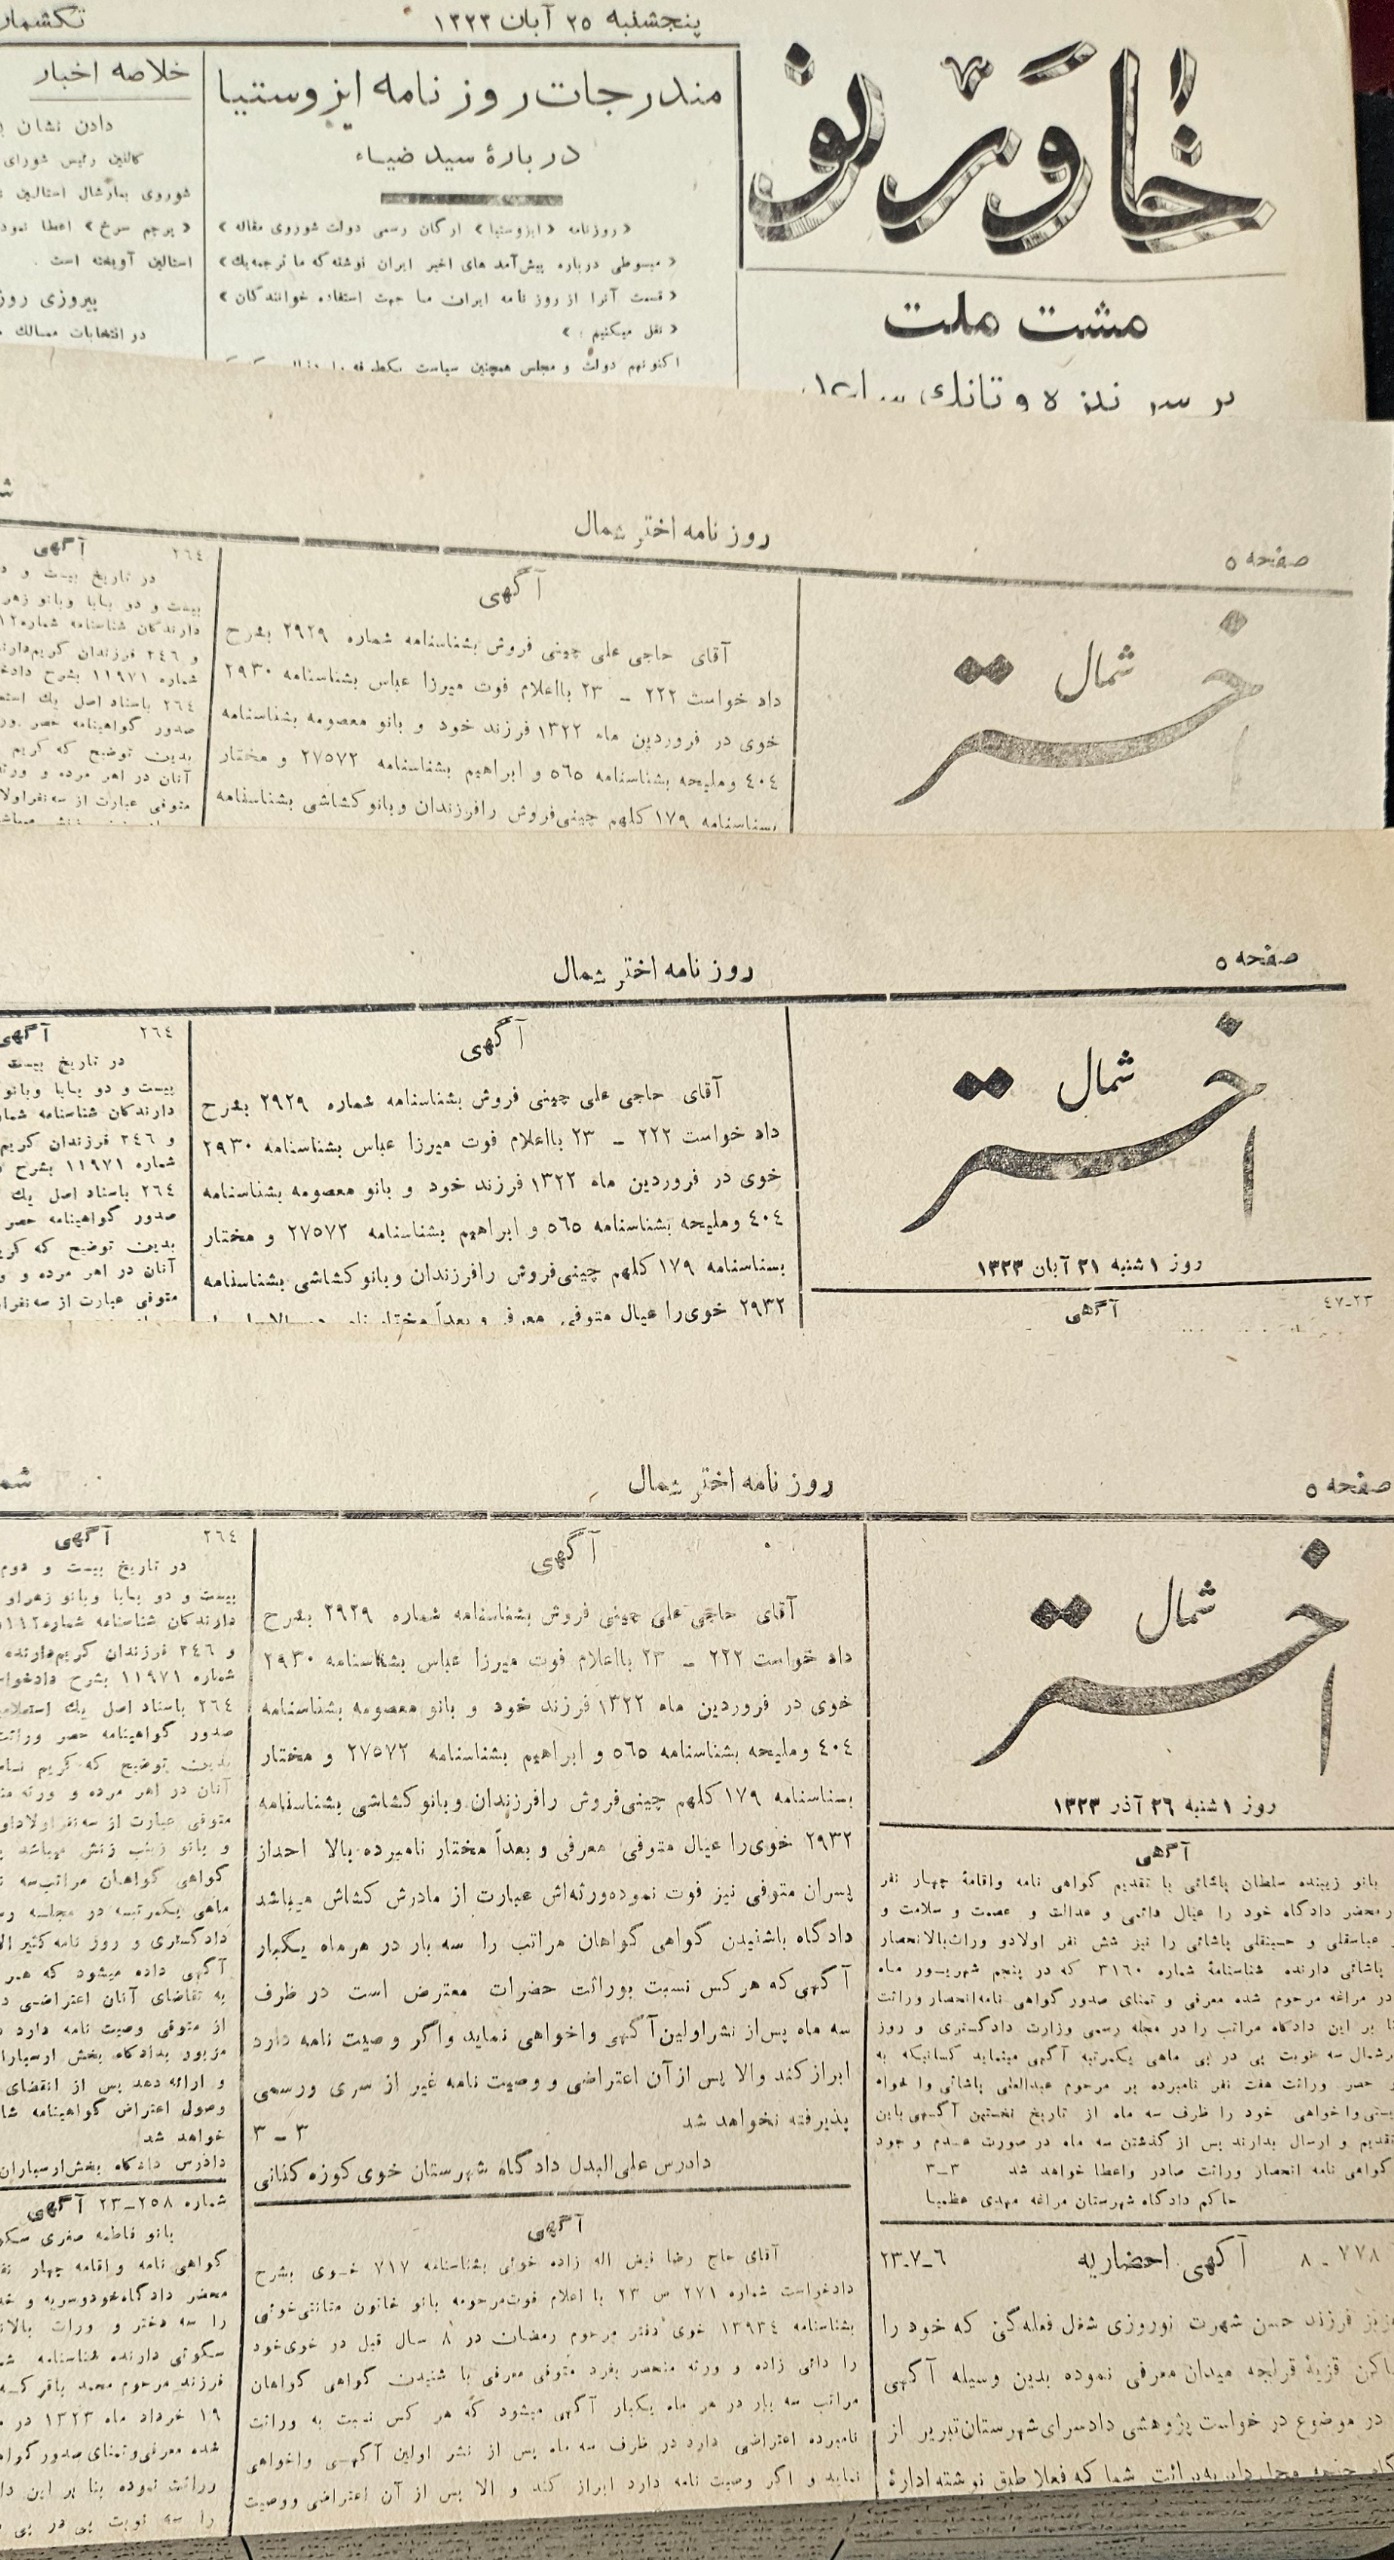 پنجشنبه ۲۵ آبان ۱۳۲۳
خاور نو
مشت ملت
بر سر نیزه و تانك
مندرجات روزنامه ایزوستیا
دربارهٔ سید ضیاء
« روزنامه « ایزوستیا » ارگان رسمی دولت شوروی مقاله »
« مبسوطی درباره پیش‌آمد های اخیر ایران نوشته که ما ترجمه یك »
« قسمت آنرا از روز نامه ایران ما جهت استفاده خوانندگان »
« نقل میکنیم . »
اکنونهم دولت و مجلس همچنین سیاست یکطرفه
خلاصه اخبار
دادن نشان
کالنین رئیس شورای
شوروی بمارشال استالین
« پرچم سرخ » اعطا نمود
استالین آویخته است .
پیروزی روز
در انتخابات ممالك
روز نامه اختر شمال
صفحه ۵
اختر شمال
آگهی
آقای حاجی علی چینی فروش بشناسنامه شماره ۲۹۲۹ بشرح
داد خواست ۲۲۲ ـ ۲۳ بااعلام فوت میرزا عباس بشناسنامه ۲۹۳۰
خوی در فروردین ماه ۱۳۲۲ فرزند خود و بانو معصومه بشناسنامه
۴۰۴ وملیحه بشناسنامه ۵۶۵ و ابراهیم بشناسنامه ۲۷۵۷۲ و مختار
بسناسنامه ۱۷۹ کلهم چینی‌فروش رافرزندان وبانو کشاشی بشناسنامه
۲۶۴ آگهی
در تاریخ بیست و
بیست و دو بابا وبانو زهر
دارندگان شناسنامه شماره
و ۲۴۶ فرزندان کریم‌دارنده
شماره ۱۱۹۷۱ بشرح
۲۶۴ باسناد اصل یك
صدور گواهینامه حصر
بدین توضیح که کریم
آنان در اهر مرده و ورثه
متوفی عبارت از سه‌نفراولاد
روز نامه اختر شمال
صفحه ۵
اختر شمال
روز ۱ شنبه ۲۱ آبان ۱۳۲۳
۴۷ـ۲۳
آگهی
آگهی
آقای حاجی علی چینی فروش بشناسنامه شماره ۲۹۲۹ بشرح
داد خواست ۲۲۲ ـ ۲۳ بااعلام فوت میرزا عباس بشناسنامه ۲۹۳۰
خوی در فروردین ماه ۱۳۲۲ فرزند خود و بانو معصومه بشناسنامه
۴۰۴ وملیحه بشناسنامه ۵۶۵ و ابراهیم بشناسنامه ۲۷۵۷۲ و مختار
بسناسنامه ۱۷۹ کلهم چینی‌فروش رافرزندان وبانو کشاشی بشناسنامه
۲۹۳۲ خوی‌را عیال متوفی معرفی و بعداً مختار
۲۶۴ آگهی
در تاریخ بیست
بیست و دو بابا وبانو
دارندگان شناسنامه شماره
و ۲۴۶ فرزندان کریم
شماره ۱۱۹۷۱ بشرح
۲۶۴ باسناد اصل یك
صدور گواهینامه حصر
بدین توضیح که
آنان در اهر مرده و
متوفی عبارت از
روز نامه اختر شمال
صفحه ۵
اختر شمال
روز ۱ شنبه ۲۶ آذر ۱۳۲۳
آگهی
بانو زیبنده سلطان پاشائی با تقدیم گواهی نامه واقامهٔ چهار نفر
محضر دادگاه خود را عیال دائمی و عدالت و عصمت و سلامت و
عباسقلی و حسینقلی پاشائی را نیز شش نفر اولادو وراث‌بالانحصار
پاشائی دارنده شناسنامهٔ شماره ۳۱۶۰ که در پنجم شهریور ماه
در مراغه مرحوم شده معرفی و تمنای صدور گواهی نامه‌انحصار وراثت
بر این دادگاه مراتب را در مجله رسمی وزارت دادگستری و روز
سه نوبت پی در پی ماهی یکمرتبه آگهی مینماید کسانیکه به
حصر وراثت هفت نفر نامبرده بر مرحوم عبدالعلی پاشائی
خود را ظرف سه ماه از تاریخ نخستین آگهی باین
تقدیم و ارسال بدارند پس از گذشتن سه ماه در صورت عدم وجود
گواهی نامه انحصار وراثت صادر واعطا خواهد شد ۳ـ۳
حاکم دادگاه شهرستان مراغه مهدی عظیما
۷۷۸ ـ ۸ آگهی احضاریه ۶ـ۷ـ۲۳
فرزند حسن شهرت نوروزی شغل فعله‌گی که خود را
قریهٔ قراجه میدان معرفی نموده بدین وسیله آگهی
در موضوع در خواست پژوهشی دادسرای‌شهرستان‌تبریز از
شما که فعلا طبق نوشته ادارهٔ
آگهی
آقای حاجی علی چینی فروش بشناسنامه شماره ۲۹۲۹ بشرح
داد خواست ۲۲۲ ـ ۲۳ بااعلام فوت میرزا عباس بشناسنامه ۲۹۳۰
خوی در فروردین ماه ۱۳۲۲ فرزند خود و بانو معصومه بشناسنامه
۴۰۴ وملیحه بشناسنامه ۵۶۵ و ابراهیم بشناسنامه ۲۷۵۷۲ و مختار
بسناسنامه ۱۷۹ کلهم چینی‌فروش رافرزندان وبانو کشاشی بشناسنامه
۲۹۳۲ خوی‌را عیال متوفی معرفی و بعداً مختار نامبرده بالا احداز
پسران متوفی نیز فوت نموده‌ورثه‌اش عبارت از مادرش کشاش میباشد
دادگاه باشنیدن گواهی گواهان مراتب را سه بار در هر ماه یکبار
آگهی که هر کس نسبت بوراثت حضرات معترض است در ظرف
سه ماه پس‌از نشر اولین‌آگهی واخواهی نماید واگر وصیت نامه دارد
ابراز کند والا پس از آن اعتراضی و وصیت نامه غیر از سری ورسمی
پذیرفته نخواهد شد ۳ ـ ۳
دادرس علی‌البدل دادگاه شهرستان خوی کوزه کنانی
آگهی
آقای حاج رضا فیض اله زاده خوئی بشناسنامه ۷۱۷ خوی بشرح
دادخواست شماره ۲۷۱ س ۲۳ با اعلام فوت‌مرحومه بانو خاتون متانتی‌خوئی
بشناسنامه ۱۳۹۳۴ خوی دفتر مرحوم رمضان در ۸ سال قبل در خوی‌خود
را دائی زاده و ورثه منحصر بفرد متوفی معرفی با شنیدن گواهی گواهان
مراتب سه بار در هر ماه یکبار آگهی میشود که هر کس نسبت به وراثت
نامبرده اعتراضی دارد در ظرف سه ماه پس از نشر اولین آگهی واخواهی
نماید و اگر وصیت نامه دارد ابراز کند و الا پس از آن اعتراضی ووصیت
۲۶۴ آگهی
در تاریخ بیست و دوم
بیست و دو بابا وبانو زهراو
دارندگان شناسنامه شماره
و ۲۴۶ فرزندان کریم‌دارنده
شماره ۱۱۹۷۱ بشرح دادخوا
۲۶۴ باسناد اصل یك استعلا
صدور گواهینامه حصر وراثت
بدین توضیح که کریم
آنان در اهر مرده و ورثه
متوفی عبارت از سه‌نفراولاداو
و بانو زینب زنش میباشد
گواهی گواهان مراتب‌سه
ماهی یکمرتبه در مجله
دادگستری و روز نامه کثیر
آگهی داده میشود که هر
به تقاضای آنان اعتراضی
از متوفی وصیت نامه دارد
مزبور بدادگاه بخش ارسباران
و ارائه دهد پس از انقضای
وصول اعتراض گواهینامه
خواهد شد
دادرس دادگاه بخش‌ارسباران
شماره ۲۵۸ـ۲۳ آگهی
بانو فاطمه صغری
گواهی نامه واقامه چهار
محضر دادگاه‌خودو
را سه دختر و وراث
سگوتی دارنده شناسنامه
فرزند مرحوم محمد باقر
۱۹ خرداد ماه ۱۳۲۳ در
شده معرفی‌وتمنای صدور
وراثت نموده بنا بر این
را سه نوبت پی در پی